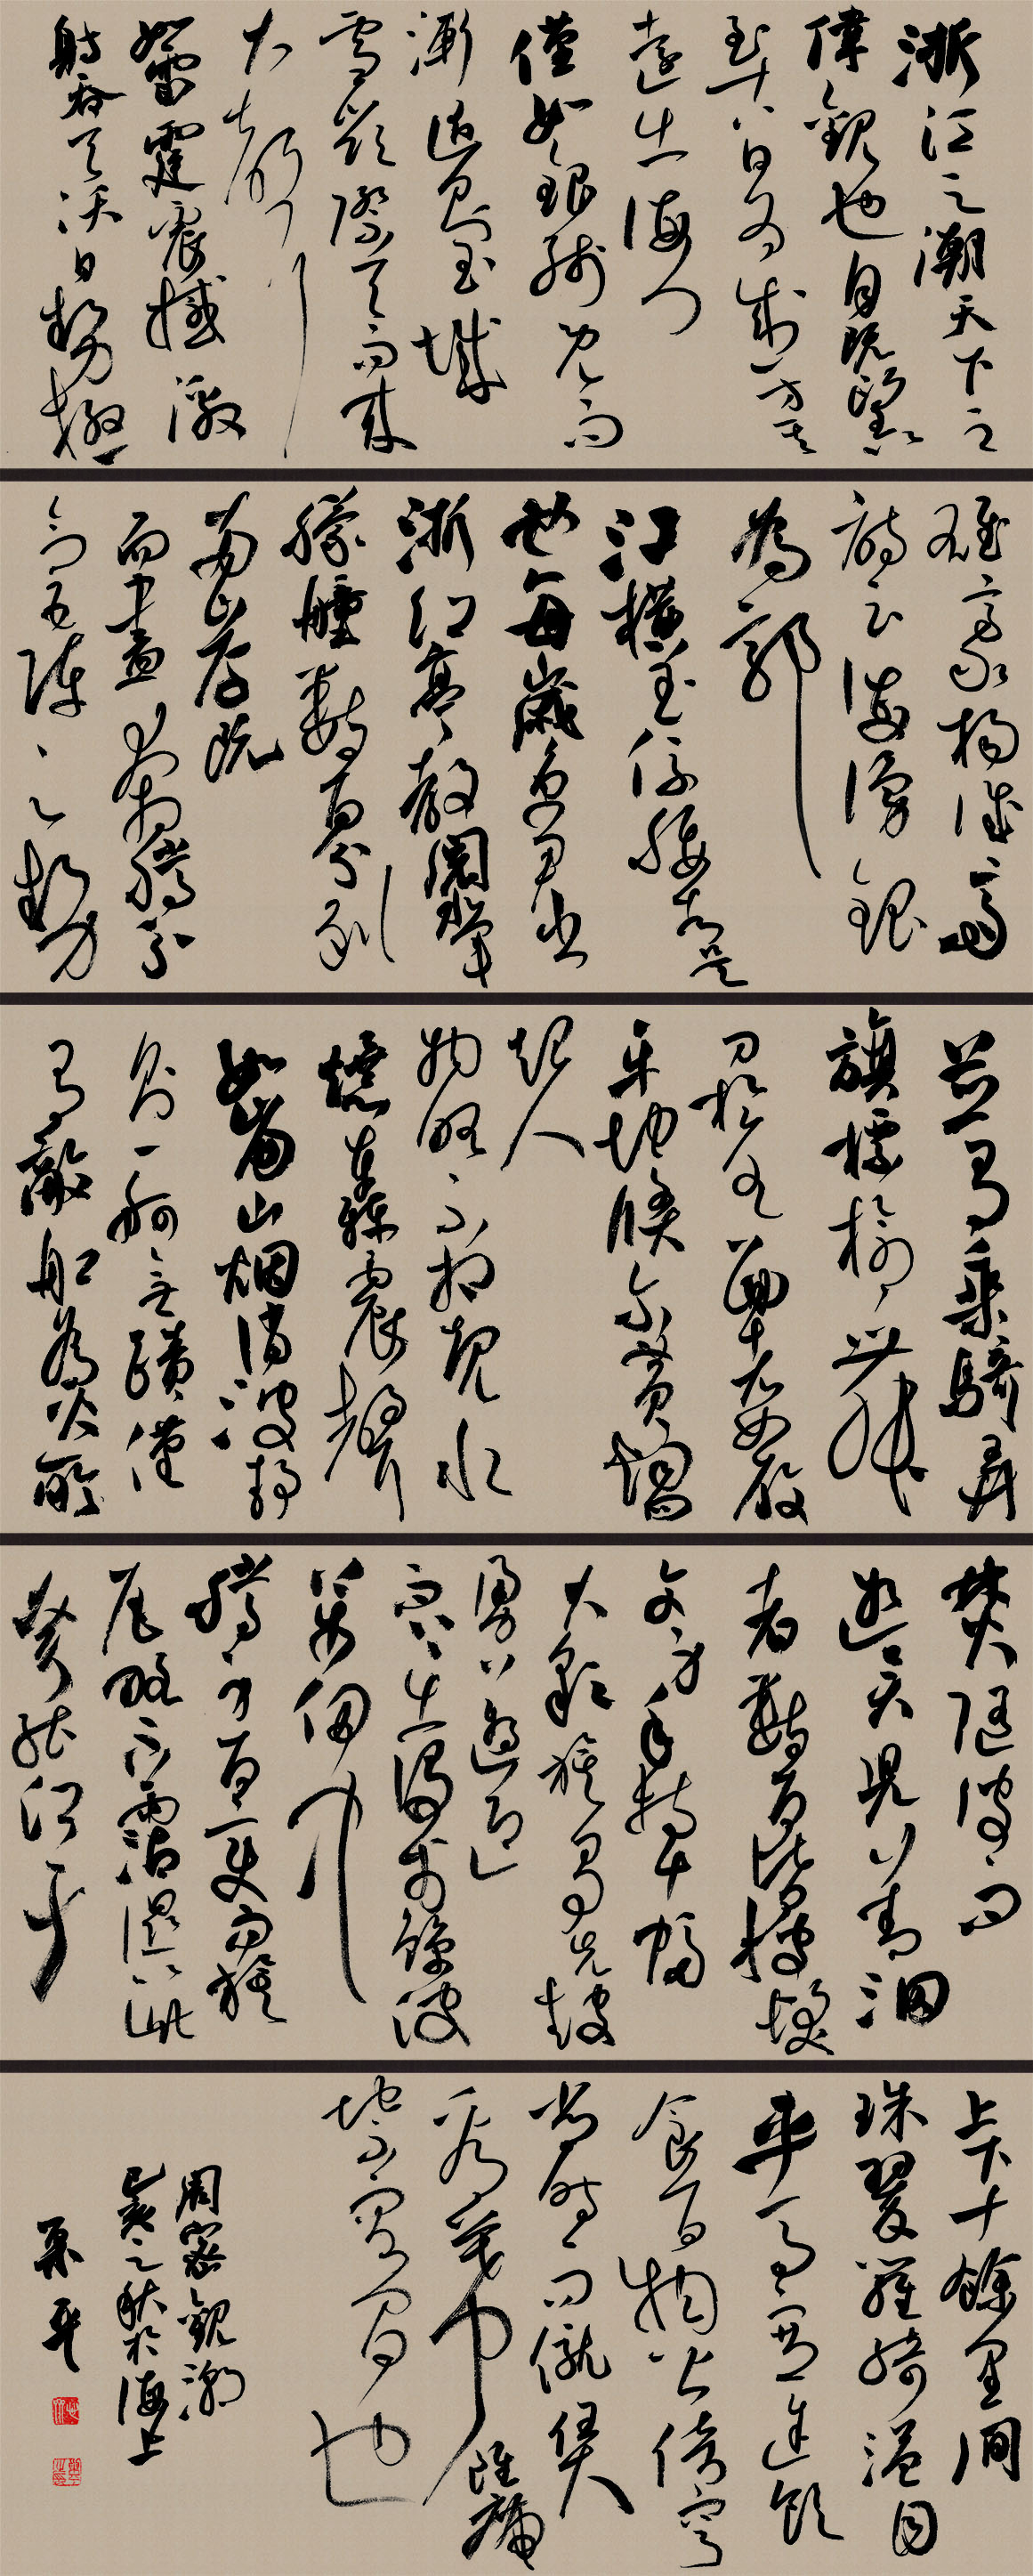 浙江之潮天下之
偉觀也自既望以
至十八日為盛方其
遠出海門
僅如銀線既而
漸近則玉城
雪嶺際天而來
大聲
如雷霆震撼激
射吞天沃日勢極
雄豪楊誠齋
詩云海湧銀
為郭
江橫玉係腰者是
也每歲京尹出
浙江亭教閱水軍
艨艟數百分列
兩岸既
而盡奔騰分
合五陣之勢
並有乘騎弄
旗標槍舞
刀於水面者如履
平地倏爾黃煙四
起人
物略不相睹水
爆轟震聲
如崩山烟消波靜
則一舸無跡僅
有敵船為火所
焚隨波而
逝吳兒善泅
者數百皆披髮
文身手持十幅
大彩旗爭先鼓
勇溯迎而上
出沒於鯨波
萬仞中
騰身百變而旗
尾略不霑濕以此
誇能江干
上下十餘里間
珠翠羅綺溢目
車馬塞途飲
食百物皆倍穹
常時而僦賃
看幕雖席
地不容間也
周密觀潮
己亥之秋於海上